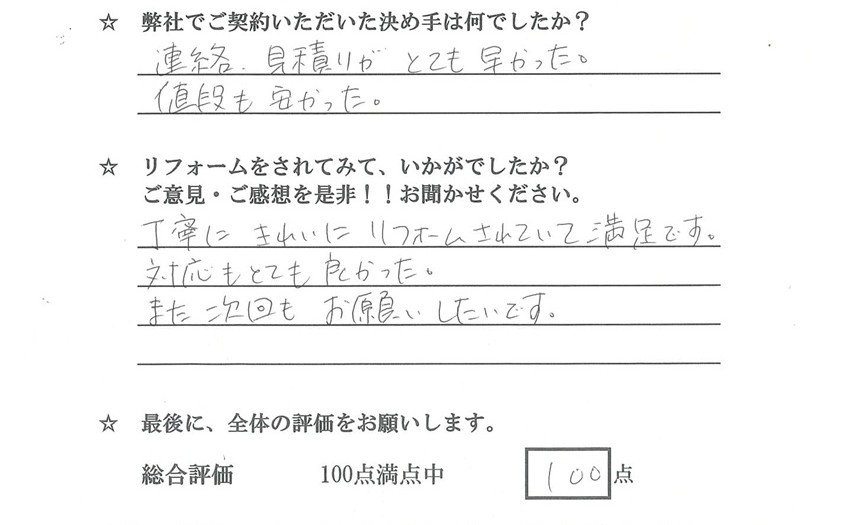 ☆ 弊社でご契約いただいた決め手は何でしたか？
連絡、見積りが とても 早かった。
値段も 安かった。
☆ リフォームをされてみて、いかがでしたか？
ご意見・ご感想を是非！！お聞かせください。
丁寧に きれいに リフォームされていて 満足です。
対応もとても 良かった。
また 次回も お願い したいです。
☆ 最後に、全体の評価をお願いします。
総合評価 100点満点中 100 点